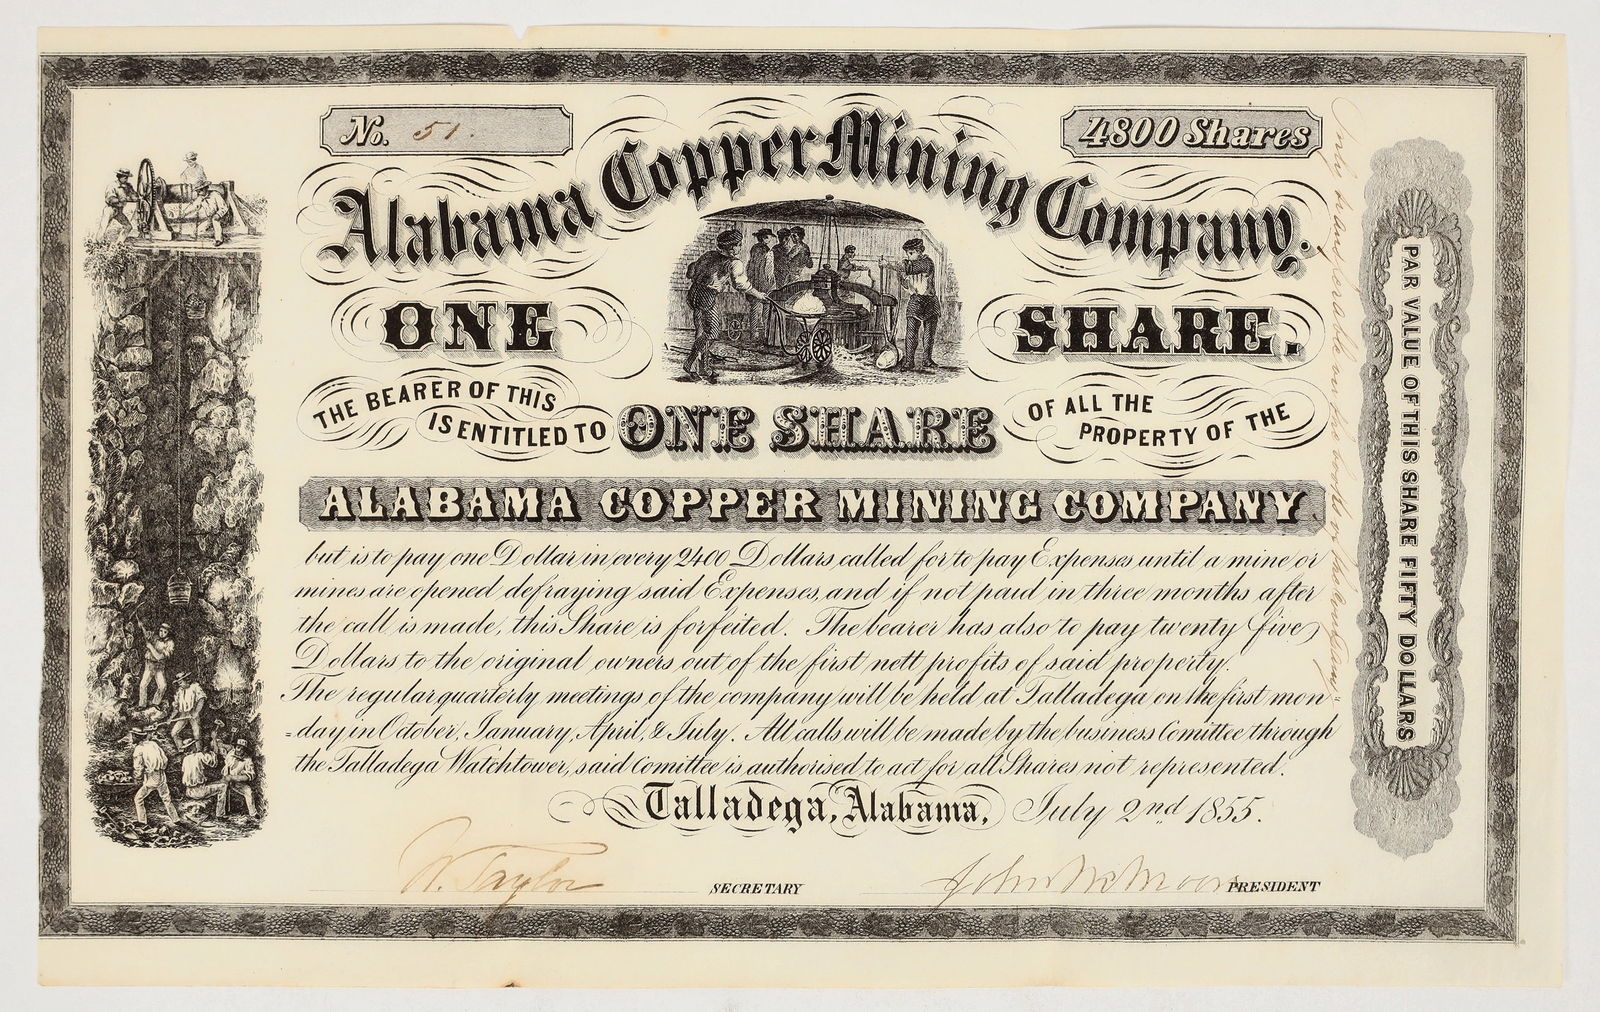 No. 51.
4800 Shares
Alabama Copper Mining Company.
ONE SHARE.
THE BEARER OF THIS
IS ENTITLED TO
ONE SHARE
OF ALL THE
PROPERTY OF THE
ALABAMA COPPER MINING COMPANY
but is to pay one Dollar in every 2400 Dollars called for to pay Expenses until a mine or
mines are opened defraying said Expenses, and if not paid in three months after
the call is made, this Share is forfeited. The bearer has also to pay twenty five
Dollars to the original owners out of the first nett profits of said property.
The regular quarterly meetings of the company will be held at Talladega on the first mon
=day in October, January, April, & July. All calls will be made by the business Comittee through
the Talladega Watchtower, said Comittee is authorised to act for all Shares not represented.
Talladega, Alabama, July 2nd 1855.
W. Taylor SECRETARY
John McMoore PRESIDENT
Only transferable on the books of the Company
PAR VALUE OF THIS SHARE FIFTY DOLLARS